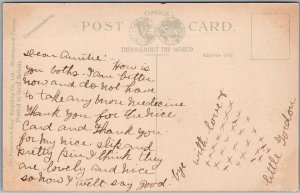 FAMOUS
POST CARD.
V & SONS
THROUGHOUT THE WORLD.
Correspondence
Address Only.
Printed in Great Britain.
Dear Auntie:- How is
you boths. I am better
now and do not have
to take any more Medicine
Thank you for the nice
Card and Thank you
for my nice slip and
pretty pin I think they
are lovely and nice
so now I will say Good
bye with love &
little Gordon
x x x x x x x x